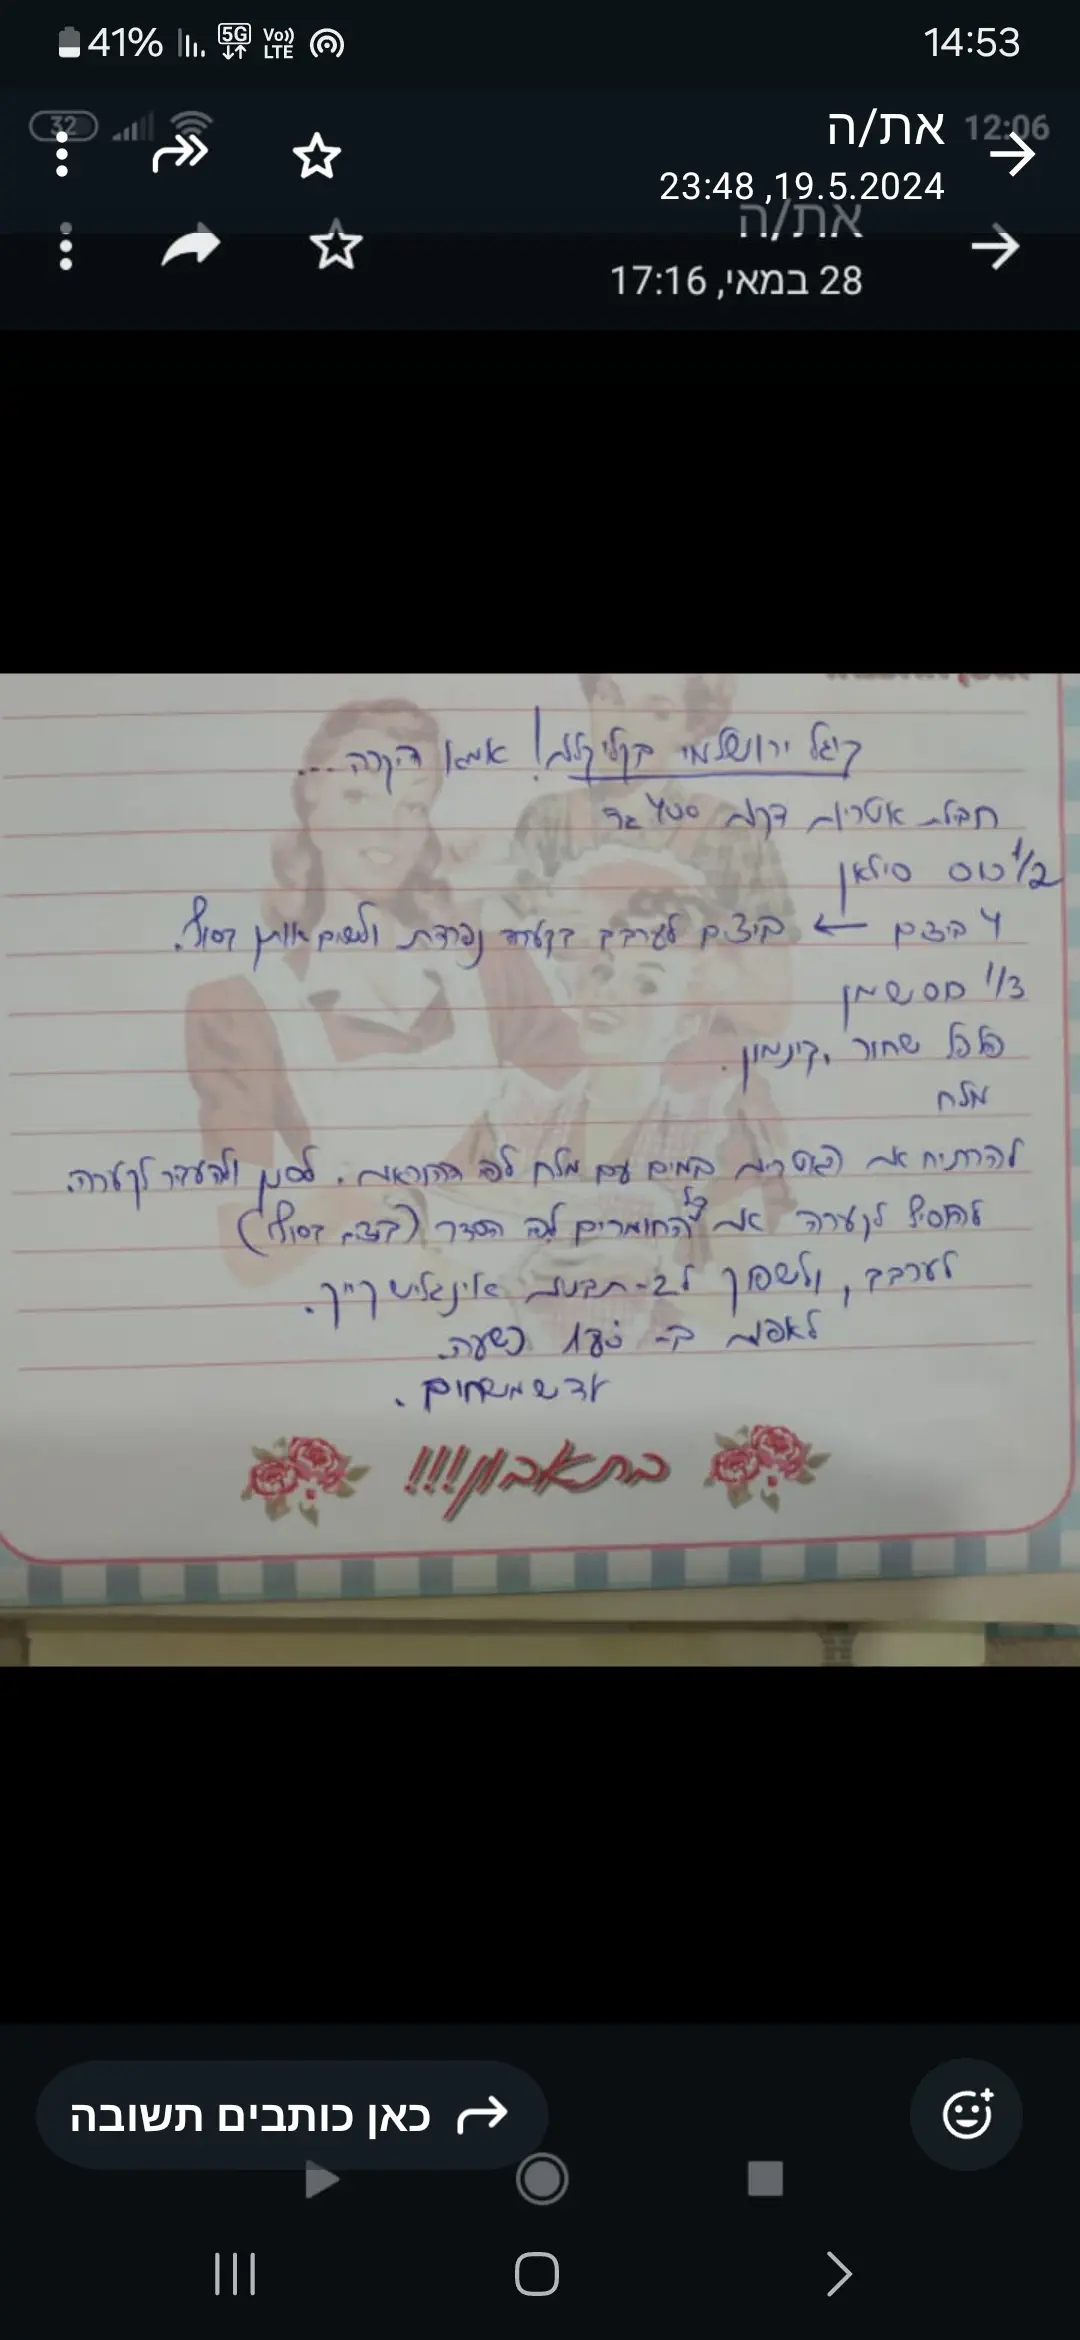 41% 5G Vo)) LTE 14:53
32 12:06
את/ה
19.5.2024, 23:48
את/ה
28 במאי, 17:16
קיגל ירושלמי בקלי קלות! אמא היקרה...
חבילת אטריות דקות 400 גר'
1/2 כוס סילאן
4 ביצים ← ביצים לערבב בקערה נפרדת ולשים אותן בסוף.
1/3 כוס שמן
פלפל שחור, קינמון.
מלח
להרתיח את האטריות במים עם מלח לפי ההוראות. לסנן ולהעביר לקערה.
להוסיף לקערה את כל החומרים לפי הסדר (ביצים בסוף)
לערבב, ולשפוך ל-2 תבניות אינגליש קייק.
לאפות ב- 180 כשעה.
עד שמשחים.
בתאבון!!!
כאן כותבים תשובה